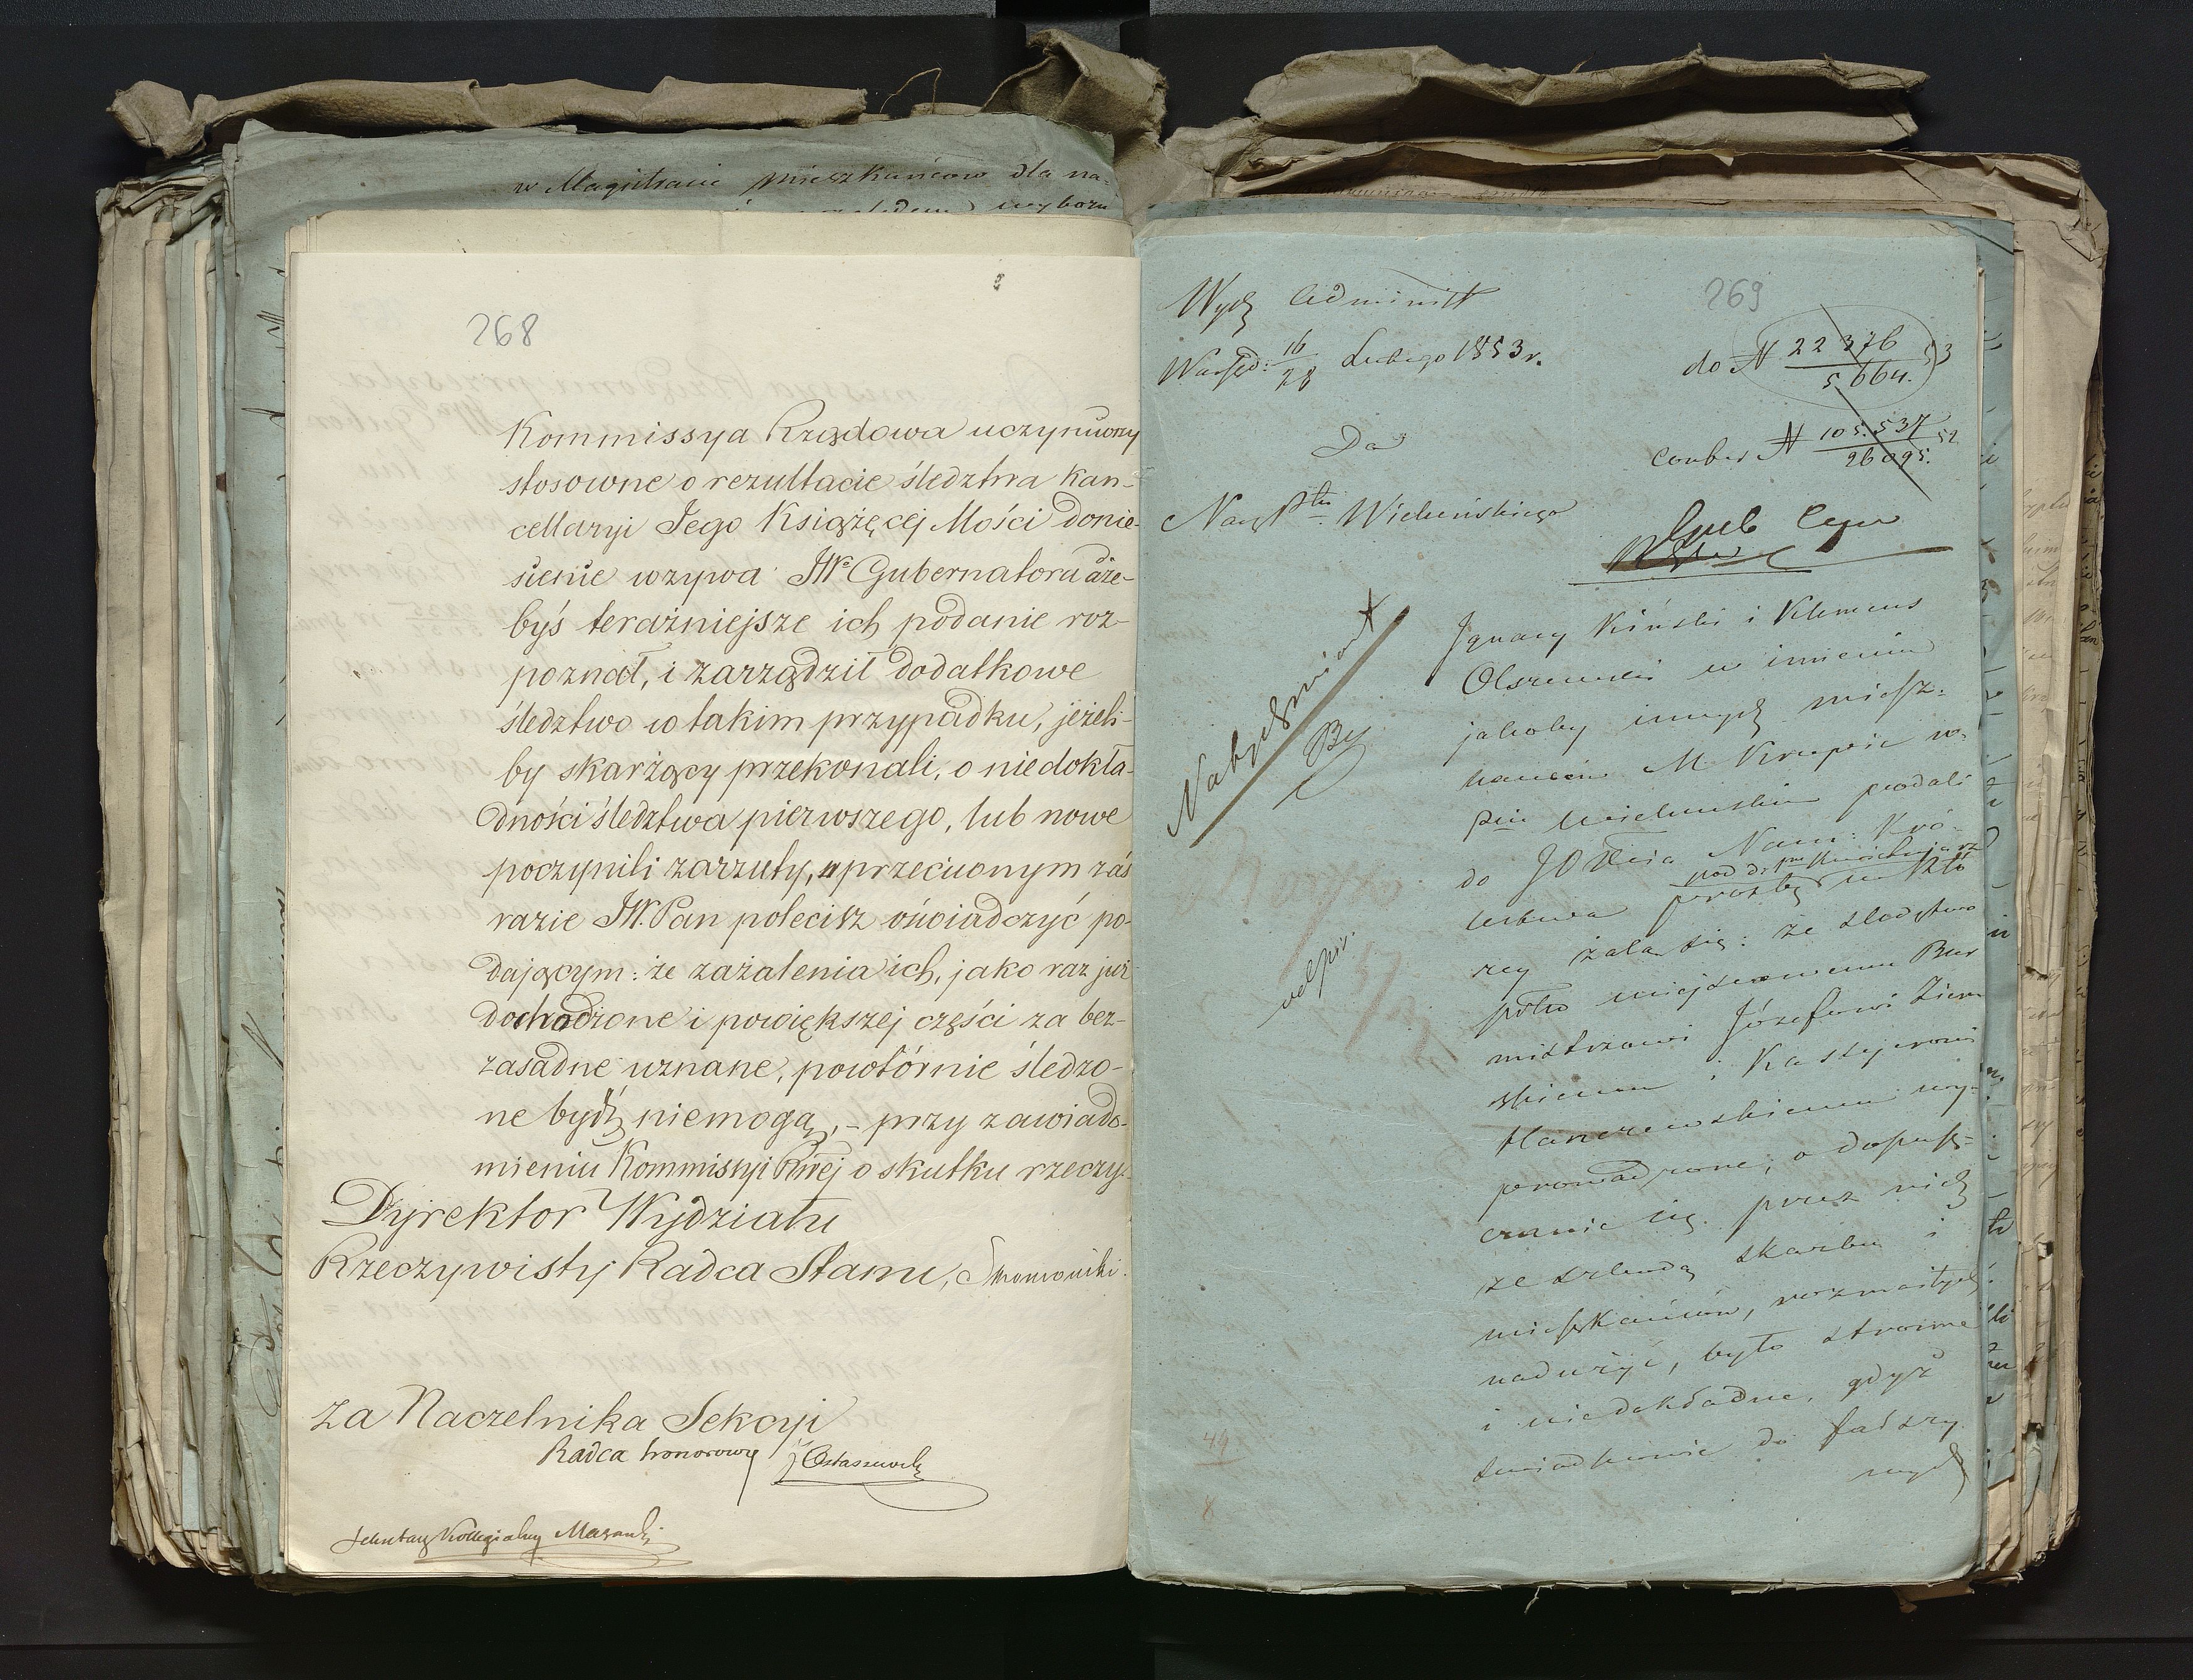 w Magistracie mieszkańców dla na=
wyboru
268
Kommissya Rządowa uczyniwszy
stosowne o rezultacie śledztwa Kan-
cellaryi Jego Książęcej Mości donie-
sienie wzywa JW. Gubernatora aże-
byś teraźniejsze ich podanie roz-
poznał, i zarządził dodatkowe
śledztwo w takim przypadku, jeżeli-
by skarżący przekonali, o niedokła-
dności śledztwa pierwszego, lub nowe
poczynili zarzuty, w przeciwnym zaś
razie JW. Pan polecisz oświadczyć po-
dającym: że zażalenia ich, jako raz już
dochodzone i powiększej części za bez-
zasadne uznane, powtórnie śledzo-
ne bydź niemogą, - przy zawiado-
mieniu Kommissyi Rwej o skutku rzeczy.
Dyrektor Wydziału
Rzeczywisty Radca Stanu,
Za Naczelnika Sekcyi
Radca honorowy J Ostaszewski
Sekretarz Kollegialny
269
Wydz Administ
Warsz d: 16/28 Lutego 1853 r.
do N 22376/5664. 53
N 105.537/26095. 52
Do
Nacz Ptu Wieluńskiego
Gub
By
Ignacy Kiński i Klemens
Olszewski w imieniu
jakoby innych miesz=
kańców M. Krzepic w
Pcie Wieluńskim podali
do JO Xcia Nam: Kró-
lestwa prośbę w któ
rey żalą się: że śledztwo
przko miejscowemu Bur
mistrzowi Józefowi Ziem
skiemu i Kassyerowi
Hanczewskiemu wy-
prowadzone, o dopusz=
czanie się przez nich
ze szkodą skarbu i
mieszkańców, rozmaitych
nadużyć, było stronne
i niedokładne, gdyż
świadkowie do fałszy
wych
49
8